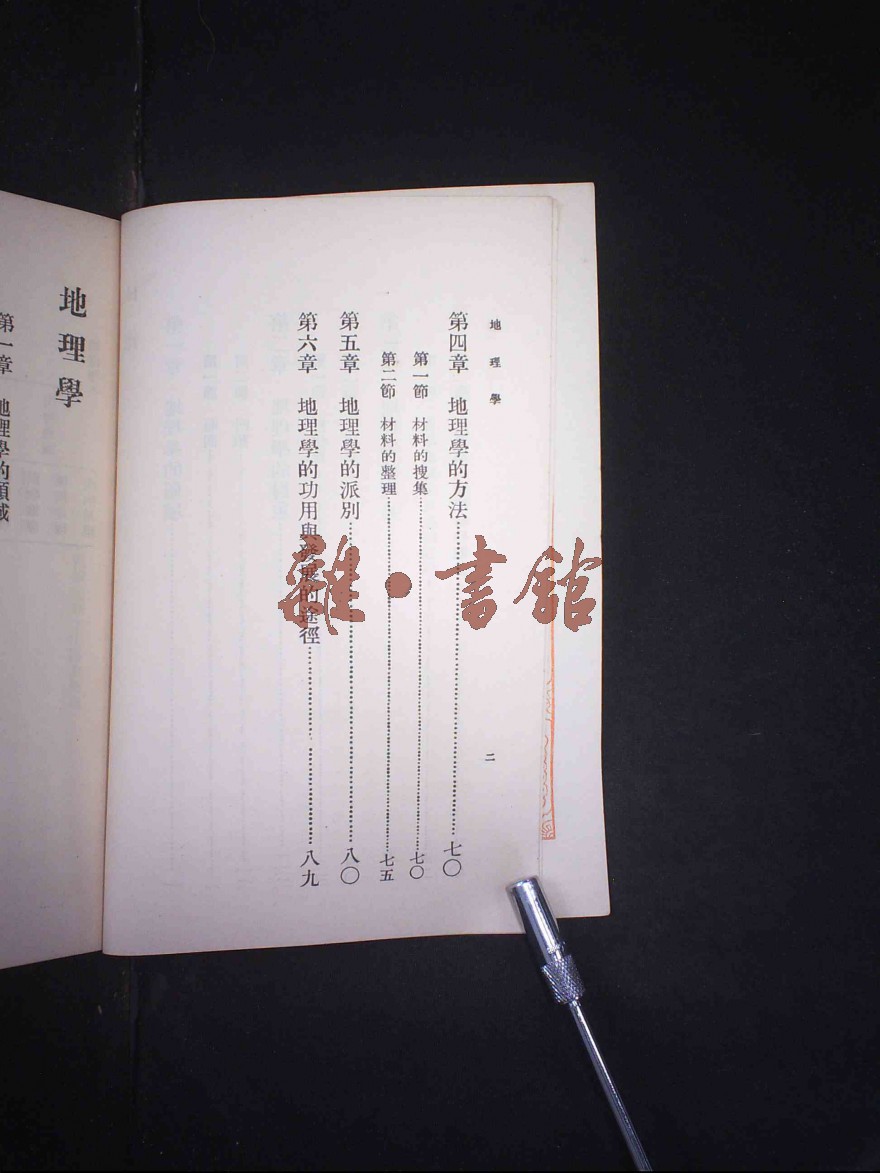 地理學
二
第四章　地理學的方法……七〇
第一節　材料的搜集……七〇
第二節　材料的整理……七五
第五章　地理學的派別……八〇
第六章　地理學的功用與發展的途徑……八九
地理學
第一章　地理學的領域
雜·書館